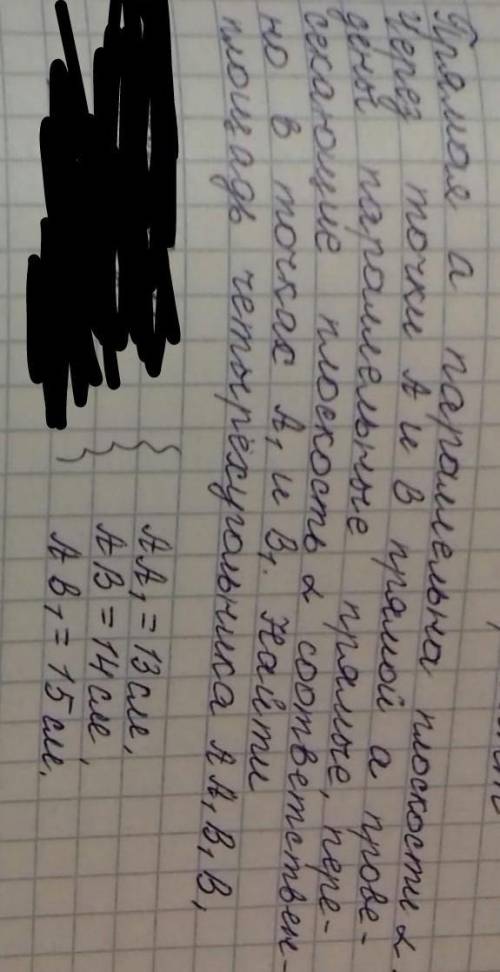 Прямая a параллельна плоскости α.
Через точки A и B прямой a прове-
дены параллельные прямые, пере-
секающие плоскость α соответствен-
но в точках A₁ и B₁. Найти
площадь четырёхугольника AA₁B₁B,
AA₁ = 13 см,
AB = 14 см,
AB₁ = 15 см.